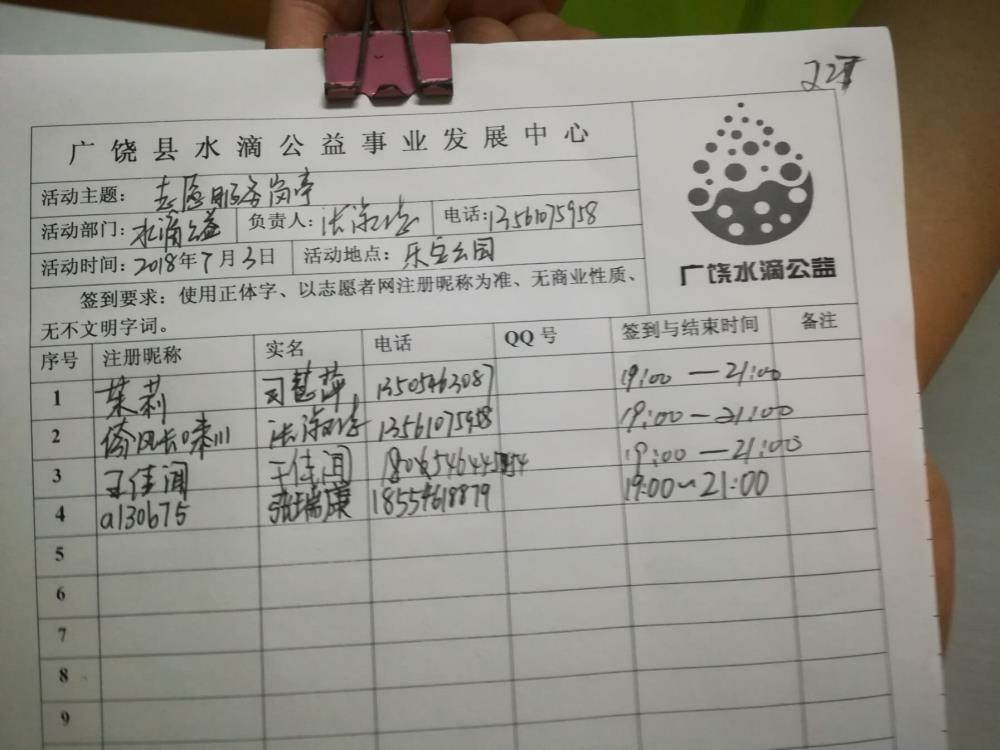 广饶县水滴公益事业发展中心
活动主题: 志愿服务岗亭
活动部门: 水滴公益 负责人: 电话: 13561075958
活动时间: 2018年7月3日 活动地点: 乐安公园
广饶水滴公益
签到要求: 使用正体字、以志愿者网注册昵称为准、无商业性质、
无不文明字词。
序号 注册昵称 实名 电话 QQ号 签到与结束时间 备注
1 茉莉 司慧萍 13505463087 19:00—21:00
2 13561075958 19:00—21:00
3 王佳闻 王佳闻 19:00—21:00
4 a130b75 张瑞康 18554618879 19:00~21:00
5
6
7
8
9